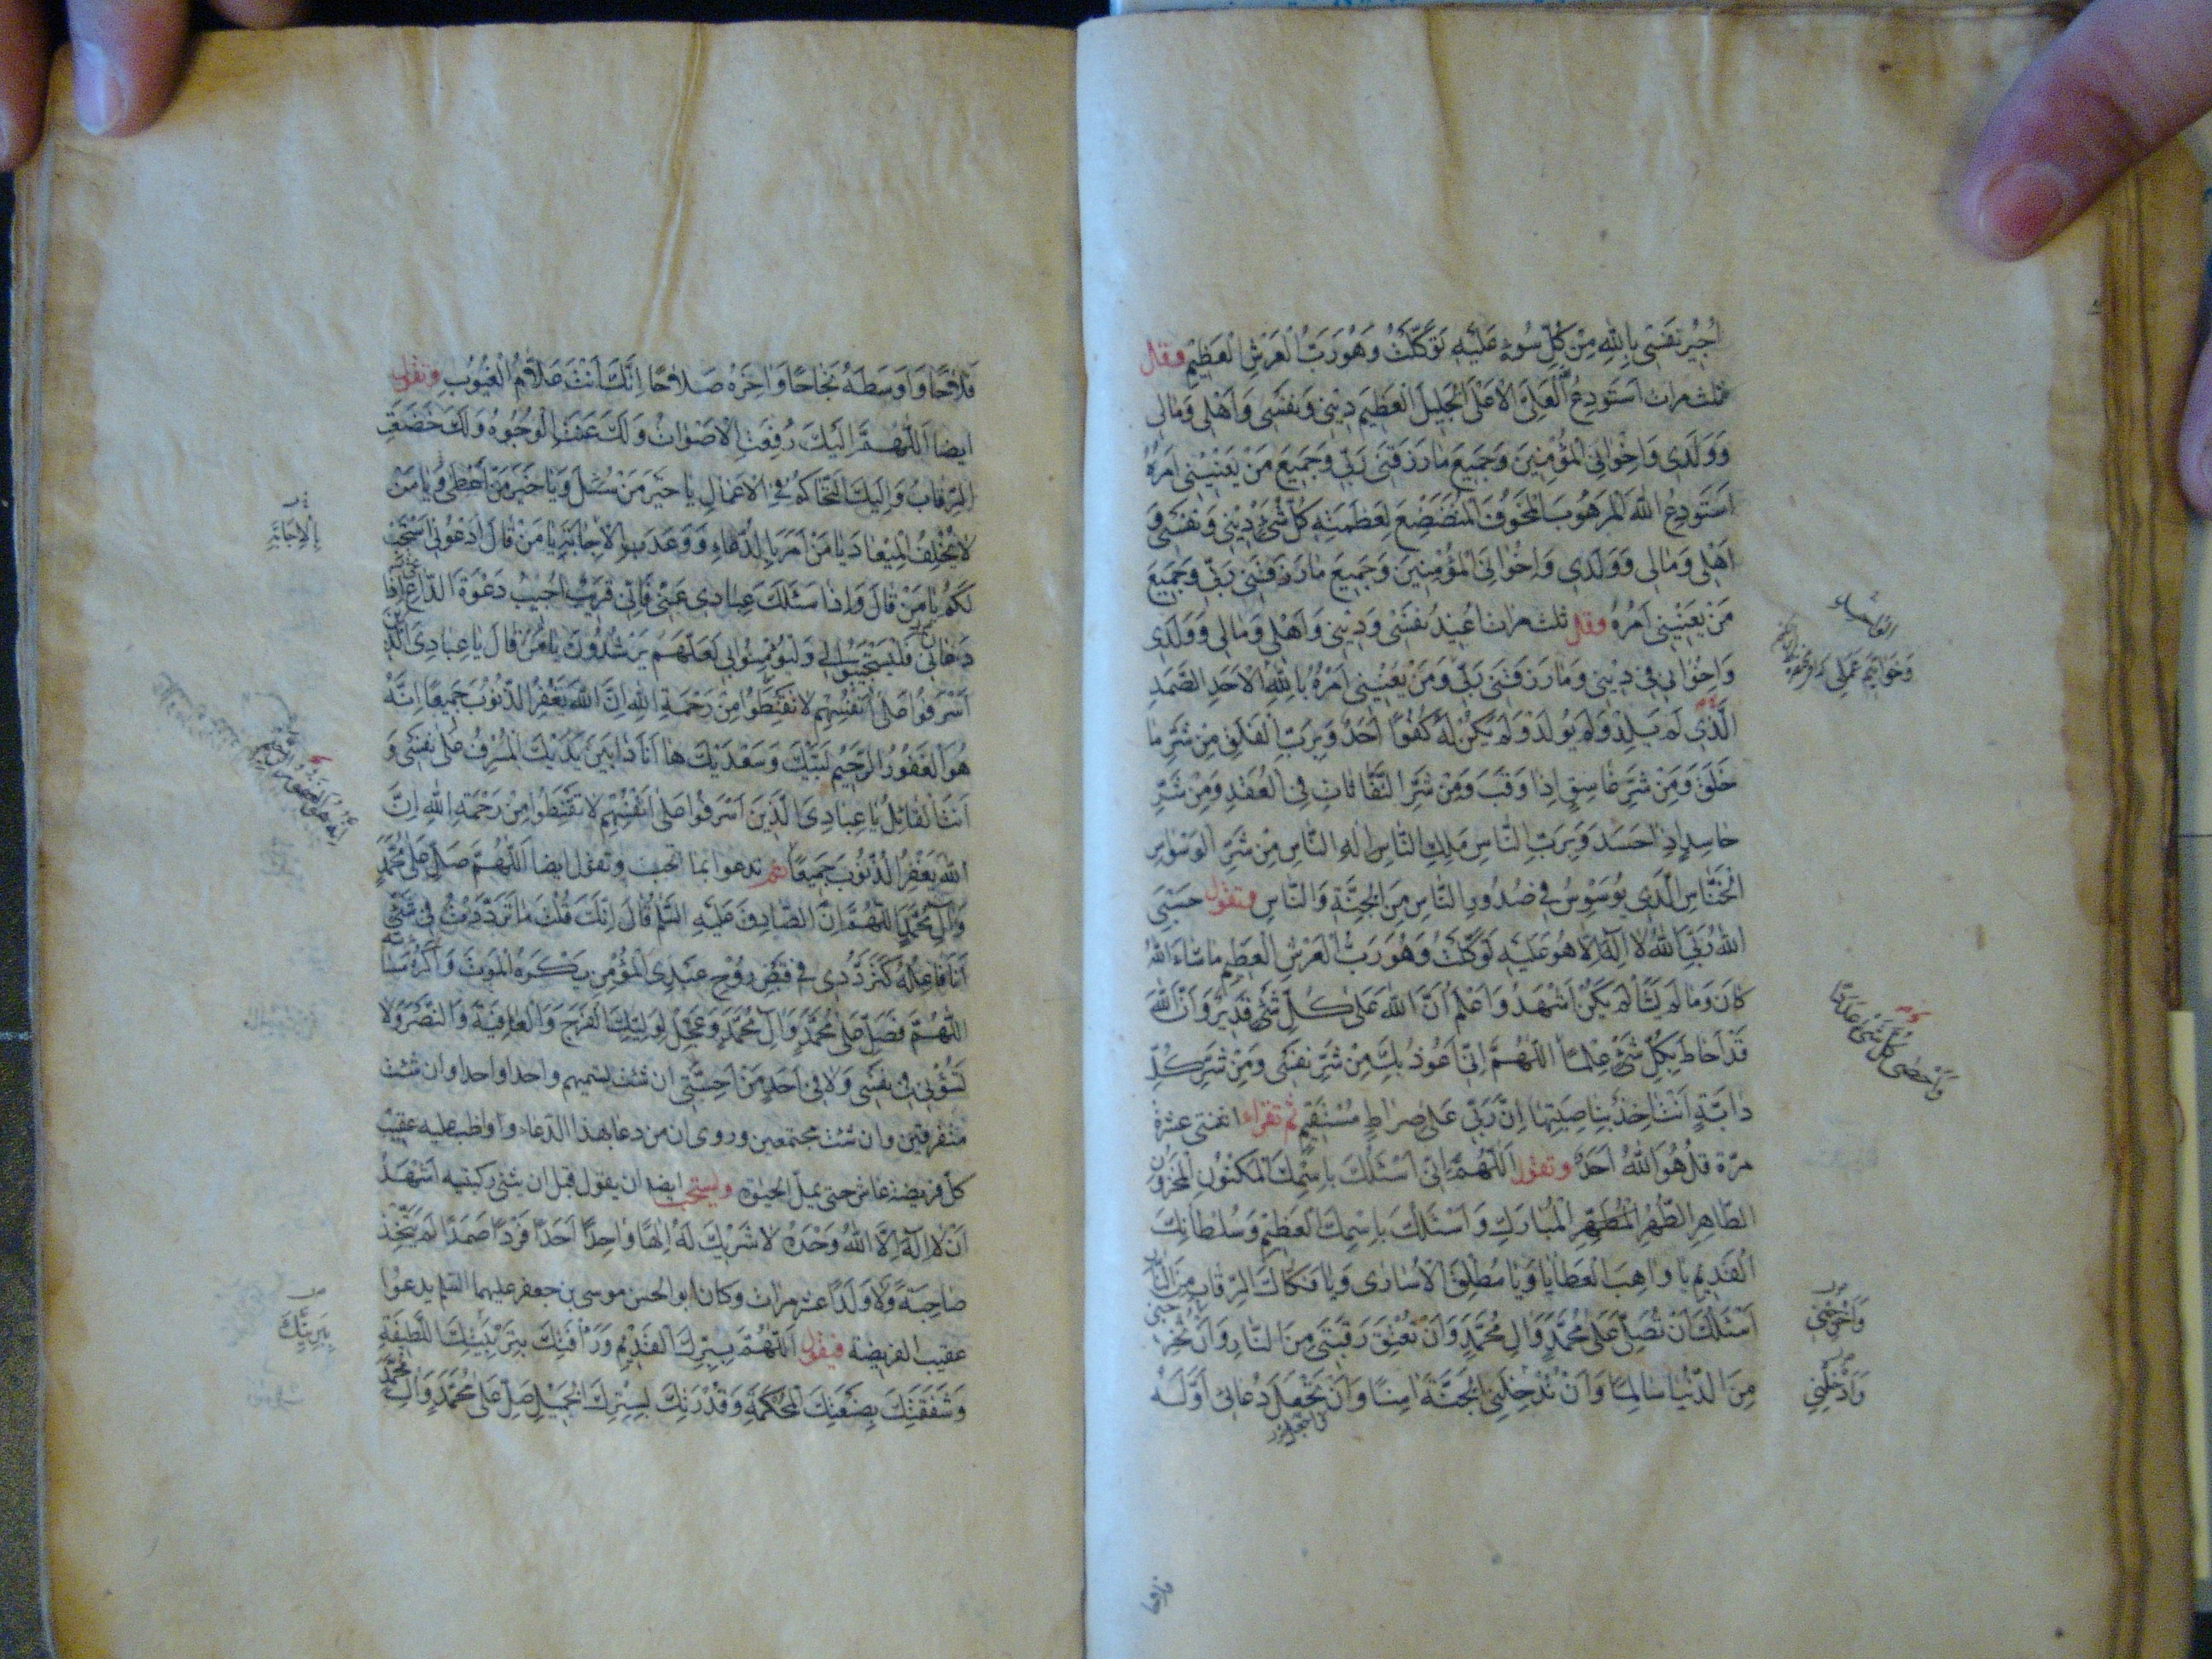 اُجِيرُ نَفْسِي بِاللّٰهِ مِنْ كُلِّ سُوءٍ عَلَيْهِ تَوَكَّلْتُ وَهُوَ رَبُّ الْعَرْشِ الْعَظِيمِ وقال
ثلث مرات اَسْتَوْدِعُ الْعَلِيَّ الْاَعْلَى الْجَلِيلَ الْعَظِيمَ دِينِي وَنَفْسِي وَاَهْلِي وَمَالِي
وَوَلَدِي وَاِخْوَانِيَ الْمُؤْمِنِينَ وَجَمِيعَ مَا رَزَقَنِي رَبِّي وَجَمِيعَ مَنْ يَعْنِينِي اَمْرُهُ
اَسْتَوْدِعُ اللّٰهَ الْمَرْهُوبَ الْمَخُوفَ الْمُتَضَعْضِعَ لِعَظَمَتِهِ كُلُّ شَيْءٍ دِينِي وَنَفْسِي وَ
اَهْلِي وَمَالِي وَوَلَدِي وَاِخْوَانِيَ الْمُؤْمِنِينَ وَجَمِيعَ مَا رَزَقَنِي رَبِّي وَجَمِيعَ
مَنْ يَعْنِينِي اَمْرُهُ وقال ثلث مرات اُعِيذُ نَفْسِي وَدِينِي وَاَهْلِي وَمَالِي وَوَلَدِي
وَاِخْوَانِي فِي دِينِي وَمَا رَزَقَنِي رَبِّي وَمَنْ يَعْنِينِي اَمْرُهُ بِاللّٰهِ الْاَحَدِ الصَّمَدِ
الَّذِي لَمْ يَلِدْ وَلَمْ يُولَدْ وَلَمْ يَكُنْ لَهُ كُفُوًا اَحَدٌ وَبِرَبِّ الْفَلَقِ مِنْ شَرِّ مَا
خَلَقَ وَمِنْ شَرِّ غَاسِقٍ اِذَا وَقَبَ وَمِنْ شَرِّ النَّفَّاثَاتِ فِي الْعُقَدِ وَمِنْ شَرِّ
حَاسِدٍ اِذَا حَسَدَ وَبِرَبِّ النَّاسِ مَلِكِ النَّاسِ اِلٰهِ النَّاسِ مِنْ شَرِّ الْوَسْوَاسِ
الْخَنَّاسِ الَّذِي يُوَسْوِسُ فِي صُدُورِ النَّاسِ مِنَ الْجِنَّةِ وَالنَّاسِ وتقول حَسْبِيَ
اللّٰهُ رَبِّيَ اللّٰهُ لَا اِلٰهَ اِلَّا هُوَ عَلَيْهِ تَوَكَّلْتُ وَهُوَ رَبُّ الْعَرْشِ الْعَظِيمِ مَا شَاءَ اللّٰهُ
كَانَ وَمَا لَمْ يَشَأْ لَمْ يَكُنْ اَشْهَدُ وَاَعْلَمُ اَنَّ اللّٰهَ عَلَى كُلِّ شَيْءٍ قَدِيرٌ وَاَنَّ اللّٰهَ
قَدْ اَحَاطَ بِكُلِّ شَيْءٍ عِلْمًا اللّٰهُمَّ اِنِّي اَعُوذُ بِكَ مِنْ شَرِّ نَفْسِي وَمِنْ شَرِّ كُلِّ
دَابَّةٍ اَنْتَ اٰخِذٌ بِنَاصِيَتِهَا اِنَّ رَبِّي عَلَى صِرَاطٍ مُسْتَقِيمٍ ثم تقراء اثنتي عشرة
مرة قُلْ هُوَ اللّٰهُ اَحَدٌ وتقول اَللّٰهُمَّ اِنِّي اَسْئَلُكَ بِاسْمِكَ الْمَكْنُونِ الْمَخْزُونِ
الطَّاهِرِ الطُّهْرِ الْمُطَهَّرِ الْمُبَارَكِ وَاَسْئَلُكَ بِاسْمِكَ الْعَظِيمِ وَسُلْطَانِكَ
الْقَدِيمِ يَا وَاهِبَ الْعَطَايَا وَيَا مُطْلِقَ الْاُسَارَى وَيَا فَكَّاكَ الرِّقَابِ مِنَ النَّارِ
اَسْئَلُكَ اَنْ تُصَلِّيَ عَلَى مُحَمَّدٍ وَاٰلِ مُحَمَّدٍ وَاَنْ تُعْتِقَ رَقَبَتِي مِنَ النَّارِ وَاَنْ تُخْرِجَنِي
مِنَ الدُّنْيَا سَالِمًا وَاَنْ تُدْخِلَنِي الْجَنَّةَ اٰمِنًا وَاَنْ تَجْعَلَ دُعَائِي اَوَّلَهُ
وَخَوَاتِيمَ عَمَلِي
وَاَحْصٰى كُلَّ شَيْءٍ عَدَدًا
وَاَخْرِجْنِي
وَاَدْخِلْنِي
فَلَاحًا وَاَوْسَطَهُ نَجَاحًا وَاٰخِرَهُ صَلَاحًا اِنَّكَ اَنْتَ عَلَّامُ الْغُيُوبِ وتقول
ايضا اَللّٰهُمَّ اِلَيْكَ رُفِعَتِ الْاَصْوَاتُ وَلَكَ عَنَتِ الْوُجُوهُ وَلَكَ خَضَعَتِ
الرِّقَابُ وَاِلَيْكَ التَّحَاكُمُ فِي الْاَعْمَالِ يَا خَيْرَ مَنْ سُئِلَ وَيَا خَيْرَ مَنْ اَعْطٰى وَيَا مَنْ
لَا يُخْلِفُ الْمِيعَادَ يَا مَنْ اَمَرَ بِالدُّعَاءِ وَوَعَدَ الْاِجَابَةَ يَا مَنْ قَالَ ادْعُونِي اَسْتَجِبْ
لَكُمْ يَا مَنْ قَالَ وَاِذَا سَئَلَكَ عِبَادِي عَنِّي فَاِنِّي قَرِيبٌ اُجِيبُ دَعْوَةَ الدَّاعِ اِذَا
دَعَانِ فَلْيَسْتَجِيبُوا لِي وَلْيُؤْمِنُوا بِي لَعَلَّهُمْ يَرْشُدُونَ يَا مَنْ قَالَ يَا عِبَادِيَ الَّذِينَ
اَسْرَفُوا عَلَى اَنْفُسِهِمْ لَا تَقْنَطُوا مِنْ رَحْمَةِ اللّٰهِ اِنَّ اللّٰهَ يَغْفِرُ الذُّنُوبَ جَمِيعًا اِنَّهُ
هُوَ الْغَفُورُ الرَّحِيمُ لَبَّيْكَ وَسَعْدَيْكَ هَا اَنَا ذَا بَيْنَ يَدَيْكَ الْمُسْرِفُ عَلَى نَفْسِي وَ
اَنْتَ الْقَائِلُ يَا عِبَادِيَ الَّذِينَ اَسْرَفُوا عَلَى اَنْفُسِهِمْ لَا تَقْنَطُوا مِنْ رَحْمَةِ اللّٰهِ اِنَّ
اللّٰهَ يَغْفِرُ الذُّنُوبَ جَمِيعًا ثم تدعوا بما تحب وتقول ايضا اَللّٰهُمَّ صَلِّ عَلَى مُحَمَّدٍ
وَاٰلِ مُحَمَّدٍ اَللّٰهُمَّ اِنَّ الصَّادِقَ عَلَيْهِ السَّلَمُ قَالَ اِنَّكَ قُلْتَ مَا تَرَدَّدْتُ فِي شَيْءٍ
اَنَا فَاعِلُهُ كَتَرَدُّدِي فِي قَبْضِ رُوحِ عَبْدِيَ الْمُؤْمِنِ يَكْرَهُ الْمَوْتَ وَاَكْرَهُ مَسَاءَتَهُ
اَللّٰهُمَّ فَصَلِّ عَلَى مُحَمَّدٍ وَاٰلِ مُحَمَّدٍ وَعَجِّلْ لِوَلِيِّكَ الْفَرَجَ وَالْعَافِيَةَ وَالنَّصْرَ وَلَا
تَسُؤْنِي فِي نَفْسِي وَلَا فِي اَحَدٍ مِنْ اَحِبَّتِي ان شئت تسميهم واحدا واحدا وان شئت
متفرقين وان شئت مجتمعين وروى ان من دعا بهذا الدعاء وواظب عليه عقيب
كل فريضة عاش حتى يمل الحيوة ويستحب ايضا ان يقول قبل ان يثني ركبتيه اَشْهَدُ
اَنْ لَا اِلٰهَ اِلَّا اللّٰهُ وَحْدَهُ لَا شَرِيكَ لَهُ اِلٰهًا وَاحِدًا اَحَدًا فَرْدًا صَمَدًا لَمْ يَتَّخِذْ
صَاحِبَةً وَلَا وَلَدًا عشر مرات وكان ابو الحسن موسى بن جعفر عليهما السلم يدعوا
عقيب الفريضة فيقول اَللّٰهُمَّ بِبِرِّكَ الْقَدِيمِ وَرَأْفَتِكَ بِتَرْبِيَتِكَ اللَّطِيفَةِ
وَشَفَقَتِكَ بِصَنْعَتِكَ الْمُحْكَمَةِ وَقُدْرَتِكَ بِسِتْرِكَ الْجَمِيلِ صَلِّ عَلَى مُحَمَّدٍ وَاٰلِ مُحَمَّدٍ
اِنَّهُ هُوَ الْغَفُورُ الرَّحِيمُ